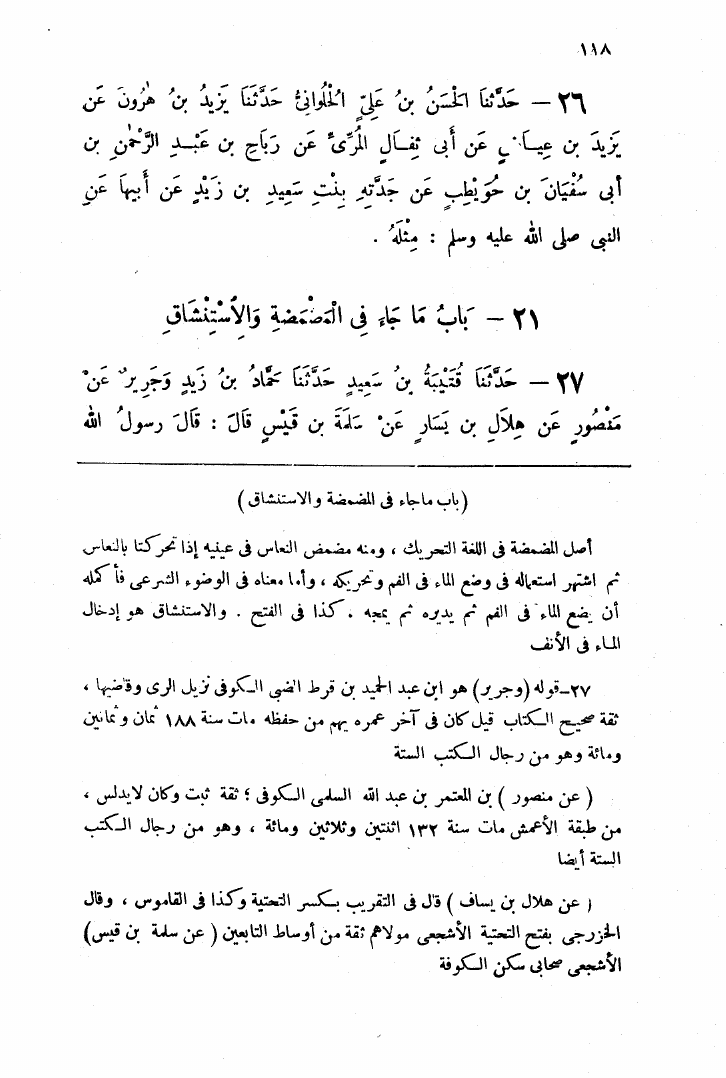 ١١٨
٢٦ — حَدَّثَنَا الْحَسَنُ بنُ عَلِيٍّ الْحُلْوَانِيُّ حَدَّثَنَا يَزِيدُ بنُ هٰرُونَ عَن
يَزِيدَ بن عِيَاضٍ عَن أَبى ثِفَالٍ المُرِّىِّ عَن رَبَاحِ بن عَبْدِ الرَّحْمٰنِ بن
أبى سُفْيَانَ بن حُوَيْطِبٍ عَن جَدَّتِهِ بِنْتِ سَعِيدِ بن زَيْدٍ عَن أَبِيهَا عَنِ
النبى صلى الله عليه وسلم : مِثْلَهُ .
٢١ — بَابُ مَا جَاءَ فِى الْمَضْمَضَةِ وَالِاسْتِنْشَاقِ
٢٧ — حَدَّثَنَا قُتَيْبَةُ بنُ سَعِيدٍ حَدَّثَنَا حَمَّادُ بنُ زَيْدٍ وَجَرِيرٌ عَنْ
مَنْصُورٍ عَن هِلَالِ بن يَسَارٍ عَنْ سَلَمَةَ بن قَيْسٍ قَالَ : قَالَ رسولُ الله
(باب ماجاء فى المضمضة والاستنشاق)
أصل المضمضة فى اللغة التحريك ، ومنه مضمض النعاس فى عينيه إذا تحركتا بالنعاس
ثم اشتهر استعماله فى وضع الماء فى الفم وتحريكه ، وأما معناه فى الوضوء الشرعى فأكمله
أن يضع الماء فى الفم ثم يديره ثم يمجه ، كذا فى الفتح . والاستنشاق هو إدخال
الماء فى الأنف
٢٧–قوله (وجرير) هو ابن عبد الحميد بن قرط الضبى الكوفى نزيل الرى وقاضيها ،
ثقة صحيح الكتاب قيل كان فى آخر عمره يهم من حفظه مات سنة ١٨٨ ثمان وثمانين
ومائة وهو من رجال الكتب الستة
( عن منصور ) بن المعتمر بن عبد الله السلمى الكوفى ؛ ثقة ثبت وكان لايدلس ،
من طبقة الأعمش مات سنة ١٣٢ اثنتين وثلاثين ومائة ، وهو من رجال الكتب
الستة أيضا
( عن هلال بن يساف ) قال فى التقريب بكسر التحتية وكذا فى القاموس ، وقال
الخزرجى بفتح التحتية الأشجعى مولاهم ثقة من أوساط التابعين ( عن سلمة بن قيس)
الأشجعى صحابى سكن الكوفة